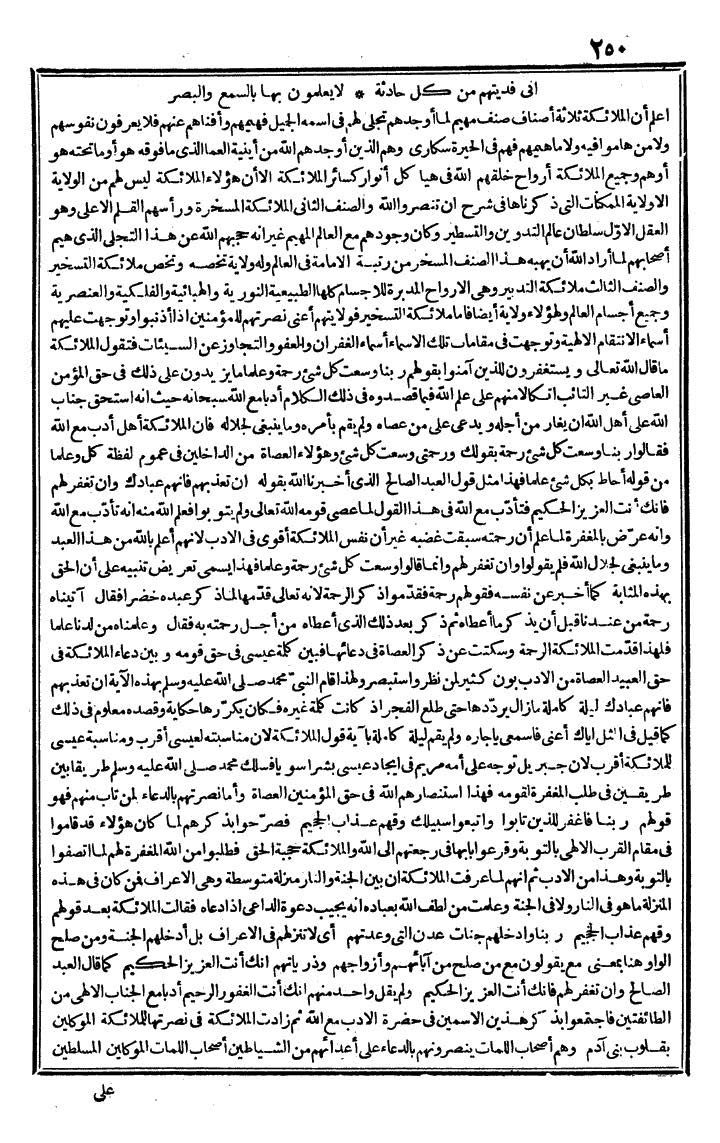 ٢٥٠
انى فديتهم من كل حادثة * لا يعلمون بها بالسمع والبصر
اعلم أن الملائكة ثلاثة أصناف صنف مهيم لما أوجدهم تجلى لهم فى اسمه الجميل فهيمهم وأفناهم عنهم فلا يعرفون نفوسهم
ولا من هاموا فيه ولا ما هيمهم فهم فى الحيرة سكارى وهم الذين أوجدهم الله من أينية العما الذى ما فوقه هو أو ما تحته هو
أوهم وجميع الملائكة أرواح خلقهم الله فى هيا كل أنوار كسائر الملائكة الا أن هؤلاء الملائكة ليس لهم من الولاية
الا ولاية الممكنات التى ذكرناها فى شرح ان تنصروا الله والصنف الثانى الملائكة المسخرة ورأسهم القلم الاعلى وهو
العقل الاول سلطان عالم التدوين والتسطير وكان وجودهم مع العالم المهيم غير انه حجبهم الله عن هذا التجلى الذى هيم
أصحابهم لما أراد الله أن يهبه هذا الصنف المسخر من رتبة الامامة فى العالم وله ولاية تخصه وتخص ملائكة التسخير
والصنف الثالث ملائكة التدبير وهى الارواح المدبرة للاجسام كلها الطبيعية النورية والهبائية والفلكية والعنصرية
وجميع أجسام العالم ولهؤلاء ولاية أيضا فاما ملائكة التسخير فولايتهم أعنى نصرتهم للمؤمنين اذا أذنبوا وتوجهت عليهم
أسماء الانتقام الالهية وتوجهت فى مقامات تلك الاسماء أسماء الغفران والعفو والتجاوز عن السيئات فتقول الملائكة
ما قال الله تعالى ويستغفرون للذين آمنوا بقولهم ربنا وسعت كل شئ رحمة وعلما ما يزيدون على ذلك فى حق المؤمن
العاصى غير التائب اتكالا منهم على علم الله فيما قصدوه فى ذلك الكلام أدبا مع الله سبحانه حيث انه استحق جناب
الله على أهل الله أن يغار من أجله ويدعى على من عصاه ولم يقم بأمره وما ينبغى لجلاله فان الملائكة أهل أدب مع الله
فقالوا ربنا وسعت كل شئ رحمة بقولك ورحمتى وسعت كل شئ وهؤلاء العصاة من الداخلين فى عموم لفظة كل وعلما
من قوله أحاط بكل شئ علما فهذا مثل قول العبد الصالح الذى أخبرنا الله بقوله ان تعذبهم فانهم عبادك وان تغفر لهم
فانك أنت العزيز الحكيم فتأدب مع الله فى هذا القول لما عصى قومه الله تعالى ولم يتوبوا فعلم الله منه انه تأدب مع الله
وانه عرض بالمغفرة لما علم أن رحمته سبقت غضبه غير أن نفس الملائكة أقوى فى الادب لانهم أعلم بالله من هذا العبد
وما ينبغى لجلال الله فلم يقولوا وان تغفر لهم وانما قالوا وسعت كل شئ رحمة وعلما فهذا يسمى تعريض تنبيه على أن الحق
بهذه المثابة كما أخبر عن نفسه فقولهم رحمة فقدموا ذكر الرحمة لانه تعالى قدمها لما ذكر عبده خضرا فقال آتيناه
رحمة من عندنا قبل أن يذكر ما أعطاه ثم ذكر بعد ذلك الذى أعطاه من أجل رحمته به فقال وعلمناه من لدنا علما
فلهذا قدمت الملائكة الرحمة وسكتت عن ذكر العصاة فى دعائها فبين كلمة عيسى فى حق قومه وبين دعاء الملائكة فى
حق العبيد العصاة من الادب بون كثير لمن نظر واستبصر ولهذا قام النبى محمد صلى الله عليه وسلم بهذه الآية ان تعذبهم
فانهم عبادك ليلة كاملة مازال يرددها حتى طلع الفجر اذ كانت كلمة غيره فكان يكررها حكاية وقصده معلوم فى ذلك
كما قيل فى المثل اياك أعنى فاسمعى ياجاره ولم يقم ليلة كاملة بآية قول الملائكة لان مناسبته لعيسى أقرب ومناسبة عيسى
للملائكة أقرب لان جبريل توجه على أمه مريم فى ايجاد عيسى بشرا سويا فسلك محمد صلى الله عليه وسلم طريقا بين
طريقين فى طلب المغفرة لقومه فهذا استنصارهم الله فى حق المؤمنين العصاة وأما نصرتهم بالدعاء لمن تاب منهم فهو
قولهم ربنا فاغفر للذين تابوا واتبعوا سبيلك وقهم عذاب الجحيم فصرحوا بذكرهم لما كان هؤلاء قد قاموا
فى مقام القرب الالهى بالتوبة وقرعوا بابها فى رجعتهم الى الله والملائكة حجبة الحق فطلبوا من الله المغفرة لهم لما اتصفوا
بالتوبة وهذا من الادب ثم انهم لما عرفت الملائكة ان بين الجنة والنار منزلة متوسطة وهى الاعراف فمن كان فى هذه
المنزلة ما هو فى النار ولا فى الجنة وعلمت من لطف الله بعباده انه يجيب دعوة الداعى اذا دعاه فقالت الملائكة بعد قولهم
وقهم عذاب الجحيم ربنا وادخلهم جنات عدن التى وعدتهم أى لا تنزلهم فى الاعراف بل أدخلهم الجنة ومن صلح
الواو هنا بمعنى مع يقولون مع من صلح من آبائهم وأزواجهم وذرياتهم انك أنت العزيز الحكيم كما قال العبد
الصالح وان تغفر لهم فانك أنت العزيز الحكيم ولم يقل واحد منهم انك أنت الغفور الرحيم أدبا مع الجناب الالهى من
الطائفتين فاجتمعوا بذكر هذين الاسمين فى حضرة الادب مع الله ثم زادت الملائكة فى نصرتها للملائكة الموكلين
بقلوب بنى آدم وهم أصحاب اللمات ينصرونهم بالدعاء على أعدائهم من الشياطين أصحاب اللمات الموكلين المسلطين
على